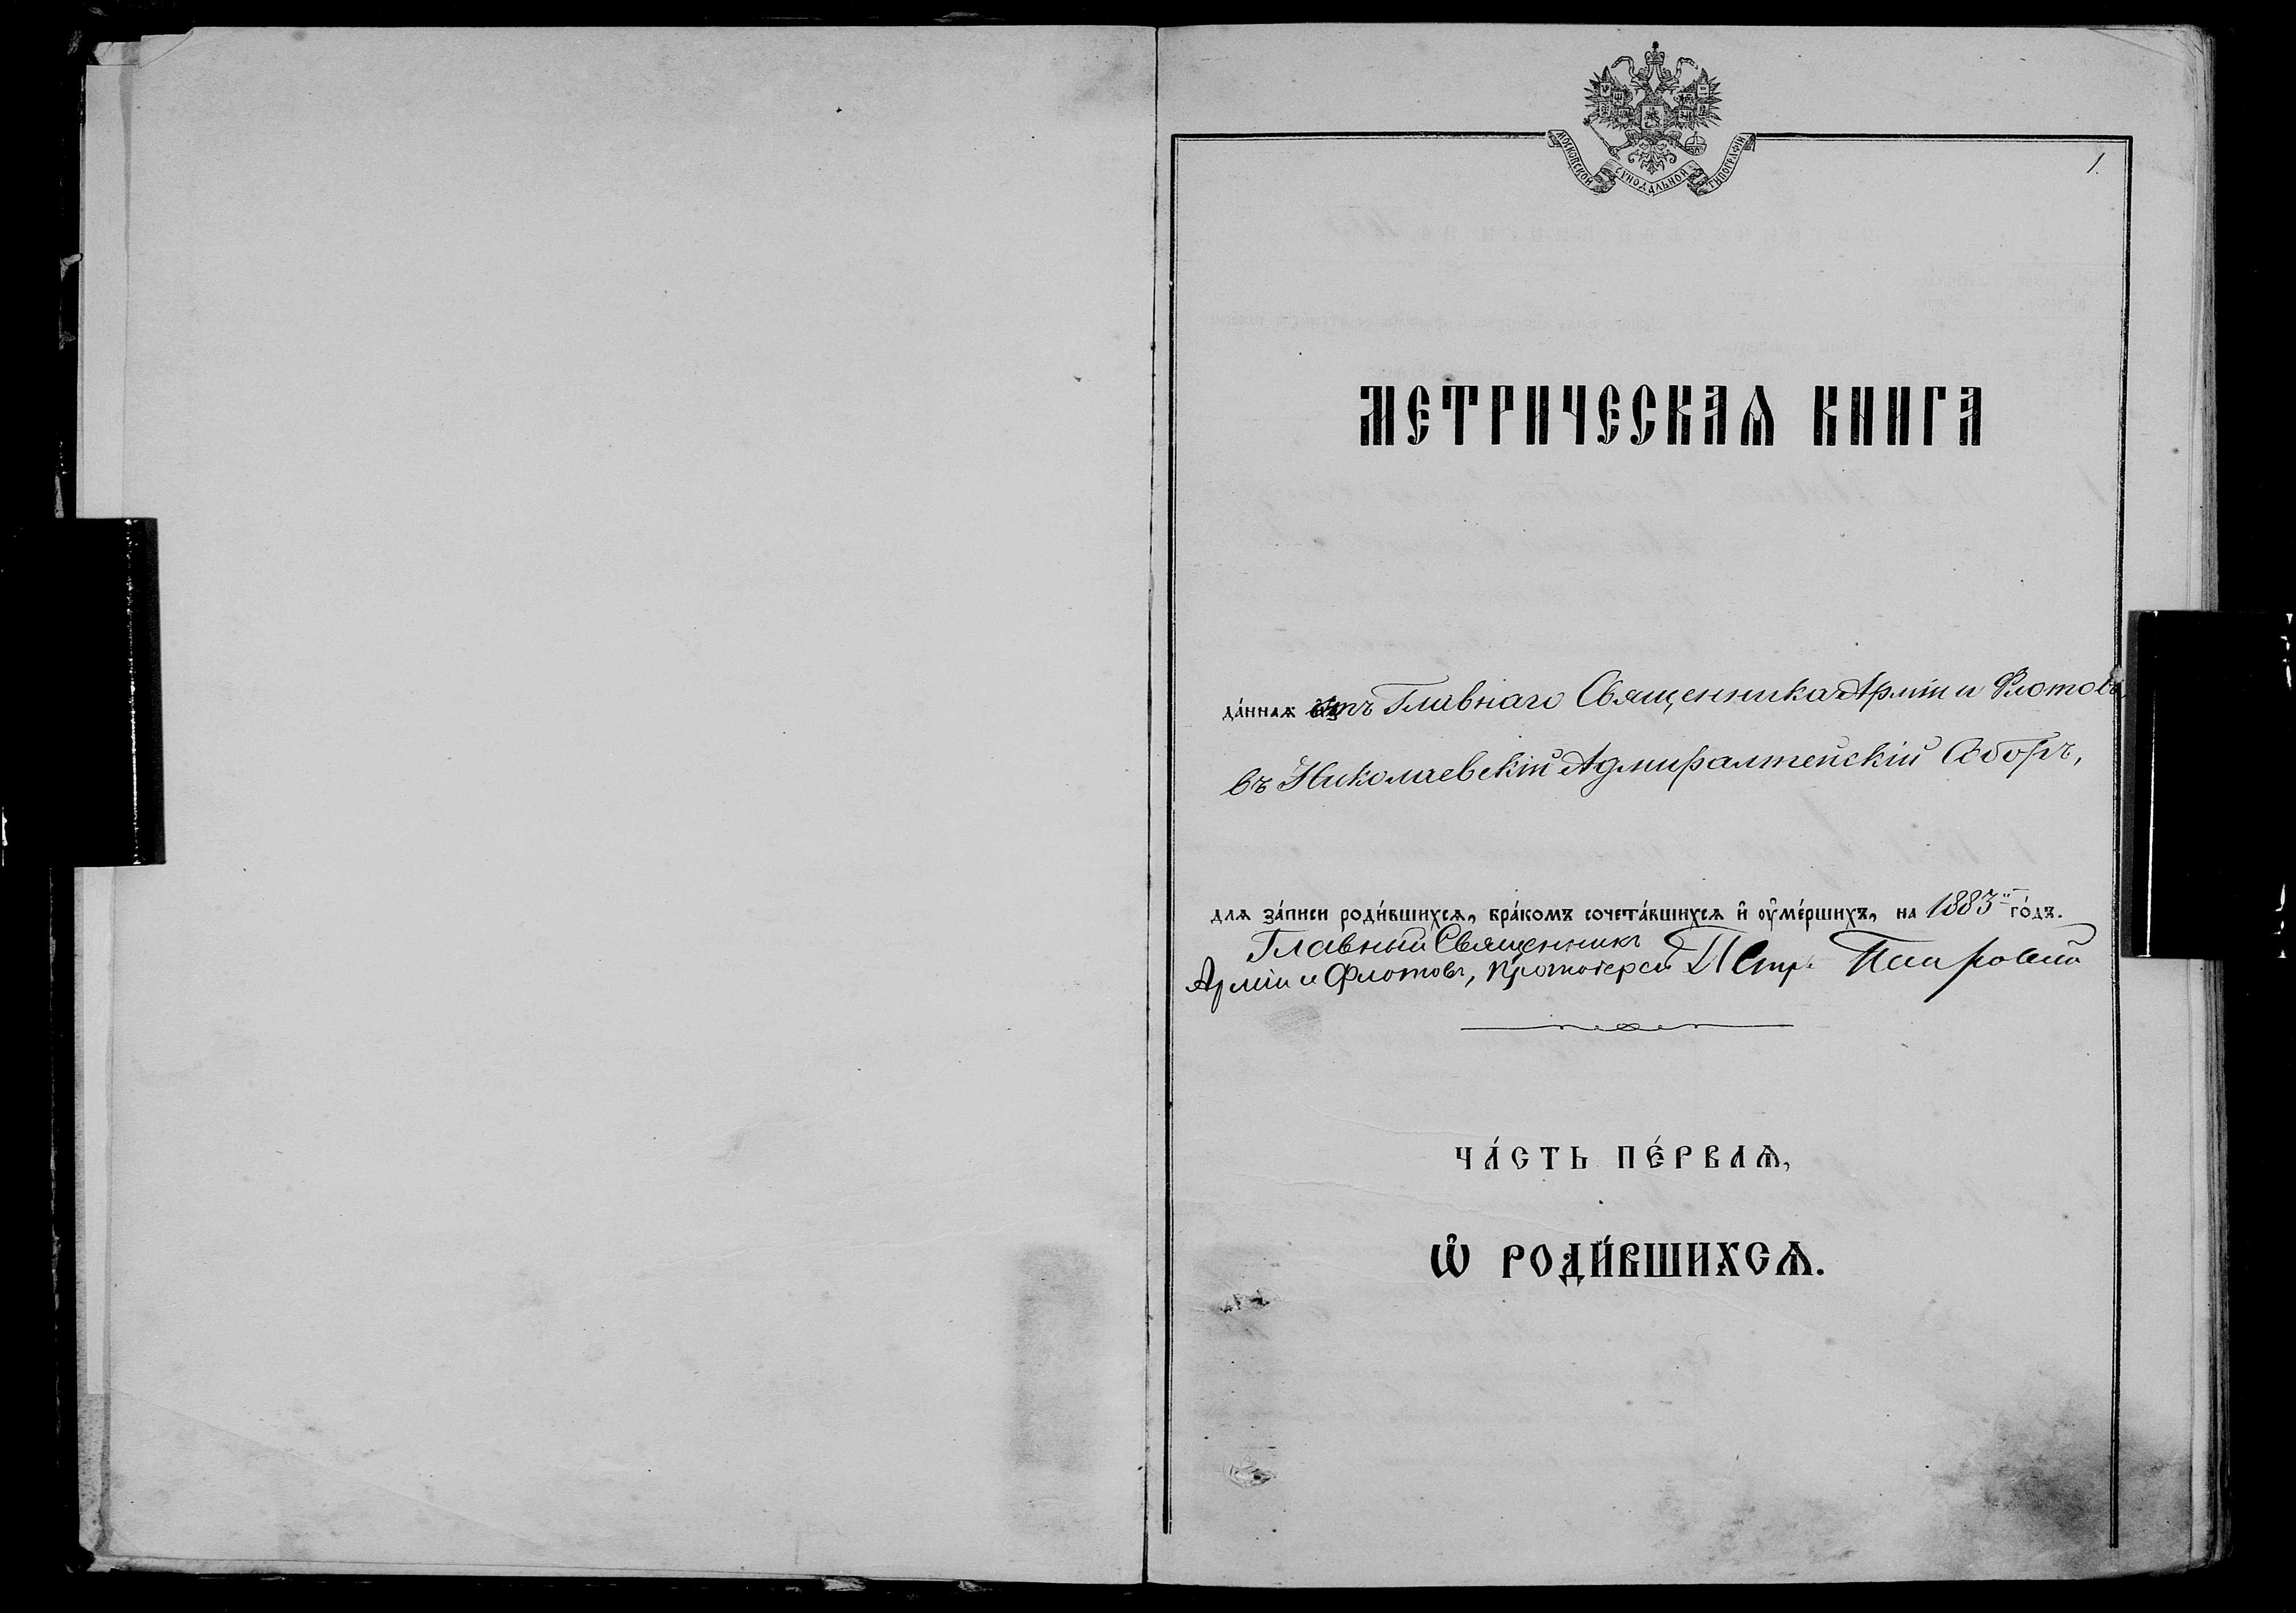 1.
МОСКОВСКОЙ СѴНОДАЛЬНОЙ ТИПОГРАФІИ
МЕТРИЧЕСКАѦ КНИГА
да́ннаѧ отъ Главнаго Священника Арміи и Флотовъ,
въ Николаевскій Адмиралтейскій Соборъ,
для за́писи роди́вшихсѧ, бра́комъ сочета́вшихсѧ и҆ ᲂу҆ме́ршихъ, на 1883й го́дъ.
Главный Священникъ
Арміи и Флотовъ, Протоіерей Петръ Покровскій
ЧА́СТЬ ПЕ́РВАѦ,
Ѡ҆ РОДИ́ВШИХСѦ.